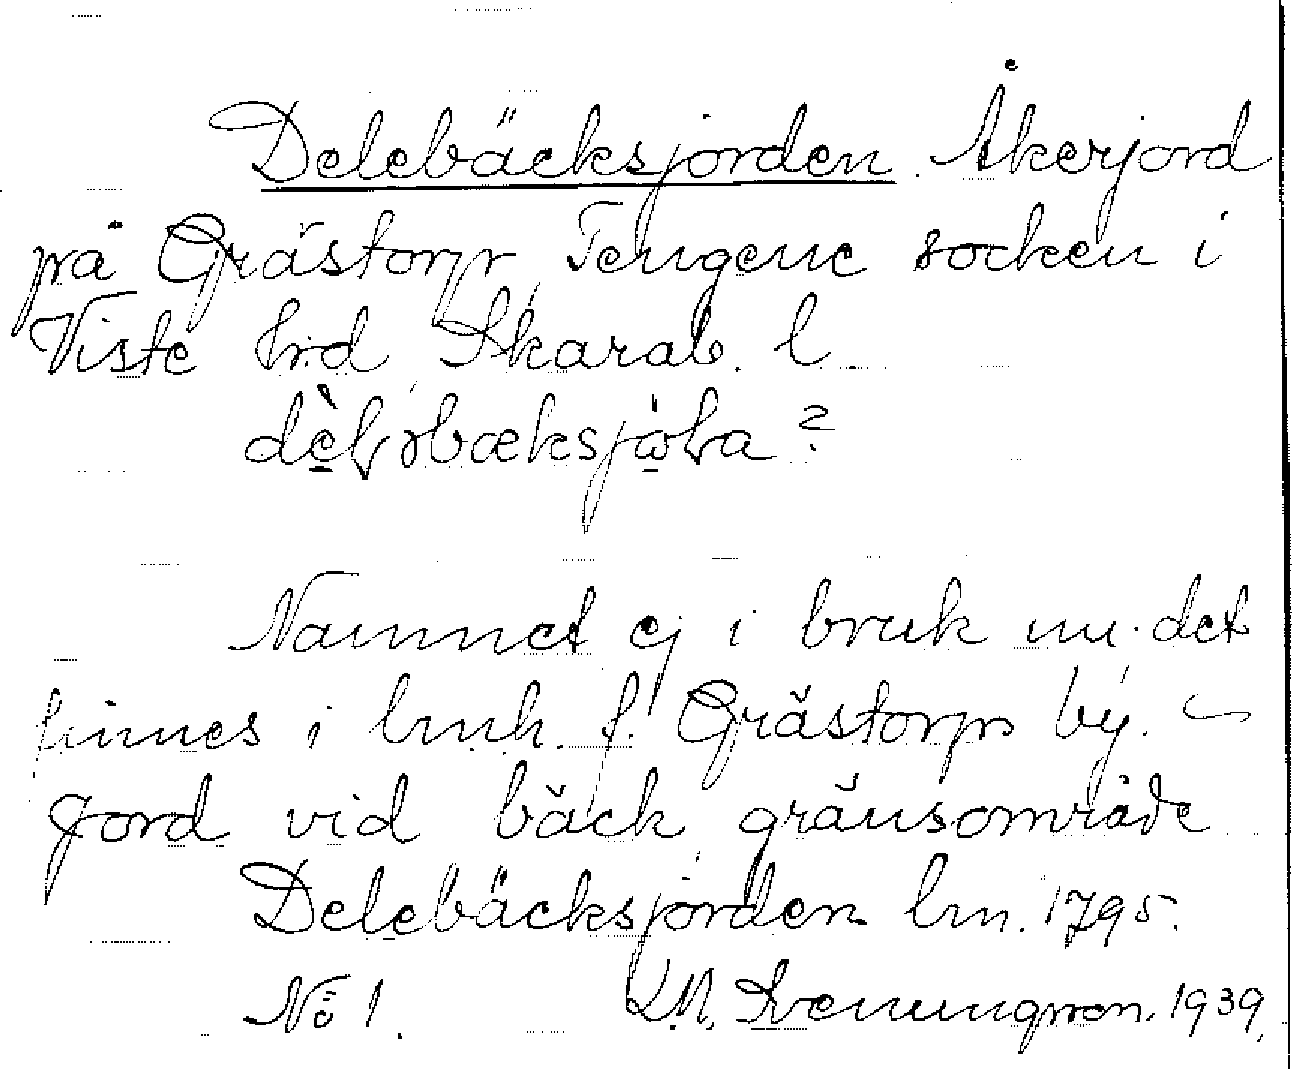 Delebäcksjorden. Åkerjord
på Grästorp, Tengene socken i
Viste hrd, Skarab. l
Namnet ej i bruk nu. det
finnes i bruk f. Grästorps by.
Jord vid bäck, gränsområde
Delebäcksjorden lm. 1795.
No 1. K.M. Svenungsson. 1939.